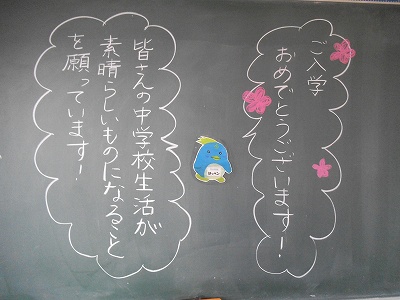 ご入学
おめでとうございます！
皆さんの中学校生活が
素晴らしいものになること
を願っています！